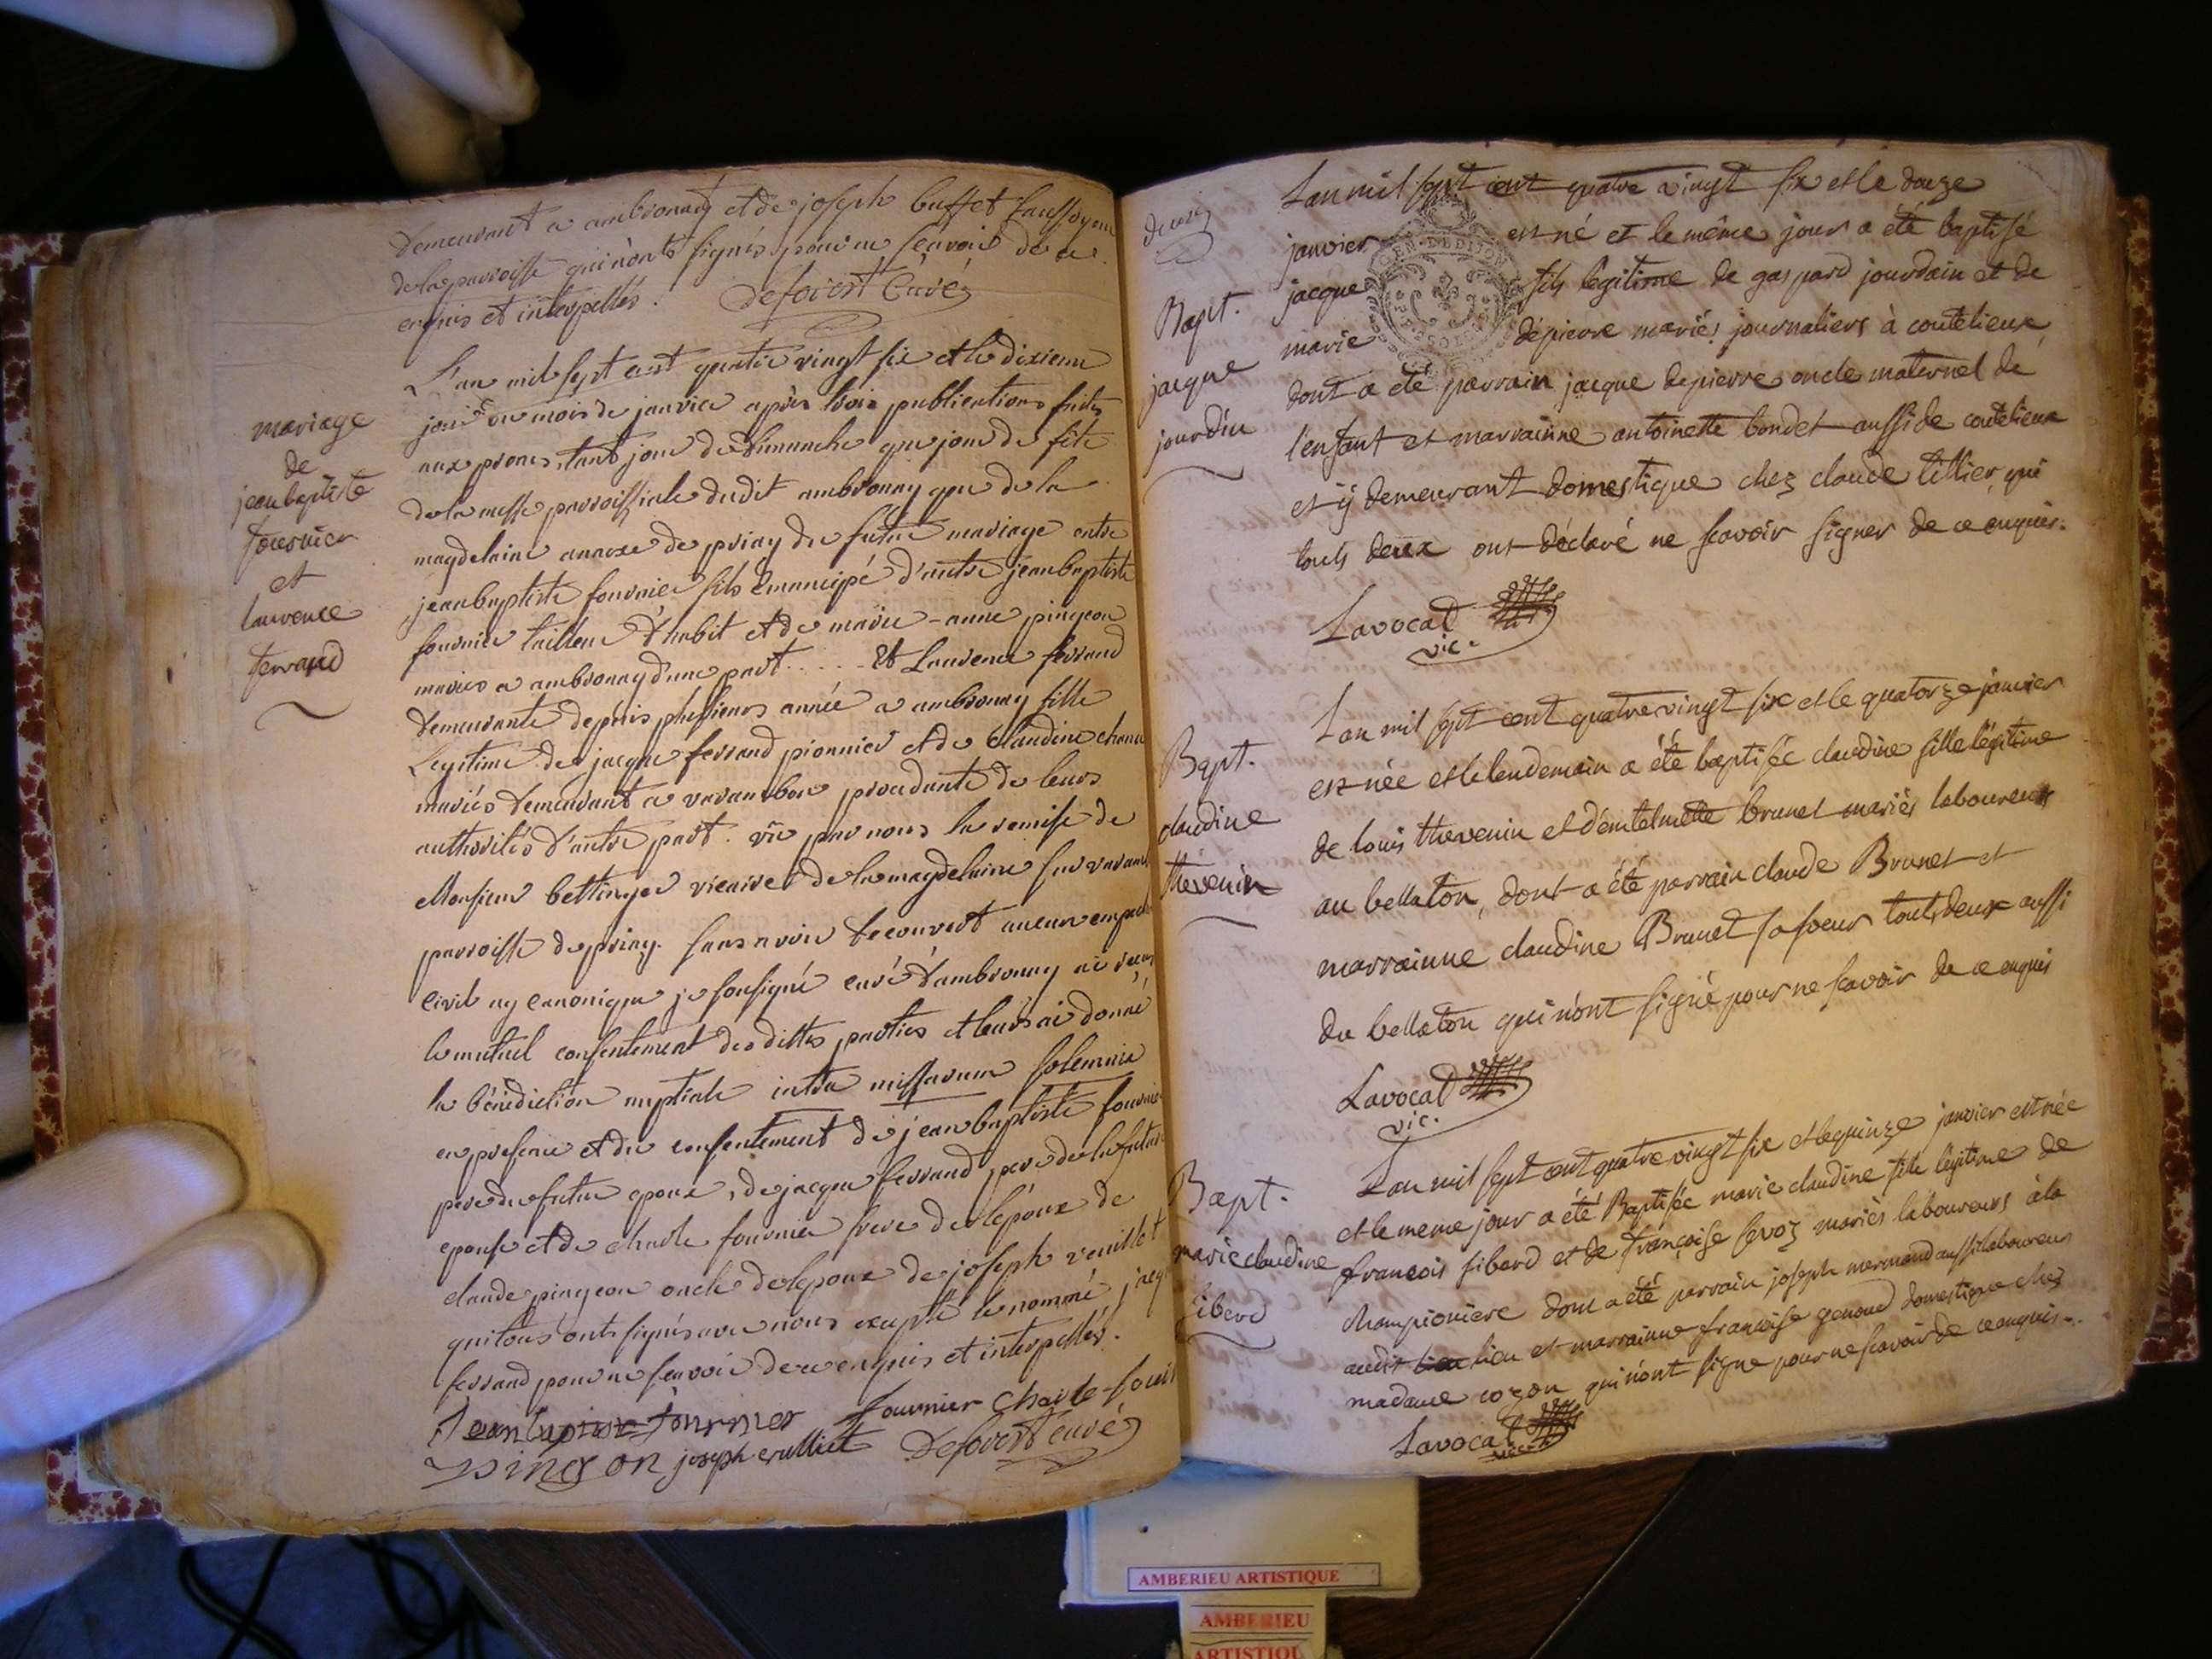 demeurant a ambronay et de joseph buffet
de la parroisse qui n'ont signés pour ne scavoir de ce
enquis et interpellés. Deforest Curé
mariage
de
jean baptiste
fournier
et
laurence
ferrand
L'an mil sept cent quatre vingt six et le dixieme
jour du mois de janvier après trois publications faites
aux prones tant jour de dimanche que jour de fête
de la messe parroissiale dudit ambronay que de la
magdelaine annexe de priay du futur mariage entre
jean baptiste fournier fils émancipé d'autre jean baptiste
fournier tailleur d'habit et de marie-anne pingeon
mariés a ambronay d'une part ..... Et Laurence ferrand
demeurante depuis plusieurs année a ambronay fille
Legitime de jacque ferrand pionnier et de Claudine
mariés demeurant a varambon procedante de leurs
authorités d'autre part. vu par nous la remise de
Monsieur vicaire de la magdelaine sur
parroisse de priay. sans avoir decouvert aucun
civil ny canonique je sousigné curé d'ambronay ai
le mutuel consentement des dittes parties et leurs ai donné
la bénédiction nuptiale intra missarum solemnia
en presence et du consentement de jean baptiste fournier
pere du futur epoux, de jacque ferrand pere de la future
epouse et de charle fournier frere de l'époux de
claude pingeon oncle de l'epoux de joseph
qui tous ont signés avec nous excepté le nommé
ferrand pour ne scavoir de ce enquis et interpellés.
Jean baptiste fournier fournier Charle
pingon joseph Deforest curé
deux
Bapt.
jacque
jourdin
Lan mil sept cent quatre vingt six et le douze
janvier est né et le même jour a été baptisé
jacque fils legitime de gaspard jourdain et de
marie depierre mariés journaliers à coutelieux
dont a été parrain jacque depierre oncle maternel de
l'enfant et marrainne antoinette bondet aussi de coutelieux
et ÿ demeurant domestique chez claude tillier, qui
touts deux ont déclaré ne scavoir signer de ce enquis.
Lavocat
vic.
Bapt.
claudine
thevenin
Lan mil sept cent quatre vingt six et le quatorze janvier
est née et le lendemain a été baptisée claudine fille légitime
de louis thevenin et brunet mariés laboureurs
au bellaton, dont a été parrain claude Brunet et
marrainne claudine Brunet sa soeur touts deux aussi
du bellaton qui n'ont signé pour ne scavoir de ce enquis
Lavocat
vic.
Bapt.
marie claudine
Lan mil sept cent quatre vingt six et le quinze janvier est née
et le meme jour a été Baptisée marie claudine fille légitime de
francois sibard et de françoise mariés laboureurs à la
championiere dont a été parrain joseph mermand aussi laboureur
audit lieu et marrainne francoise genoud domestique chez
madame cozon qui n'ont signe pour ne scavoir de ce enquis...
Lavocat
GEN. DE DIJON
AMBERIEU ARTISTIQUE
AMBERIEU
ARTISTIQU